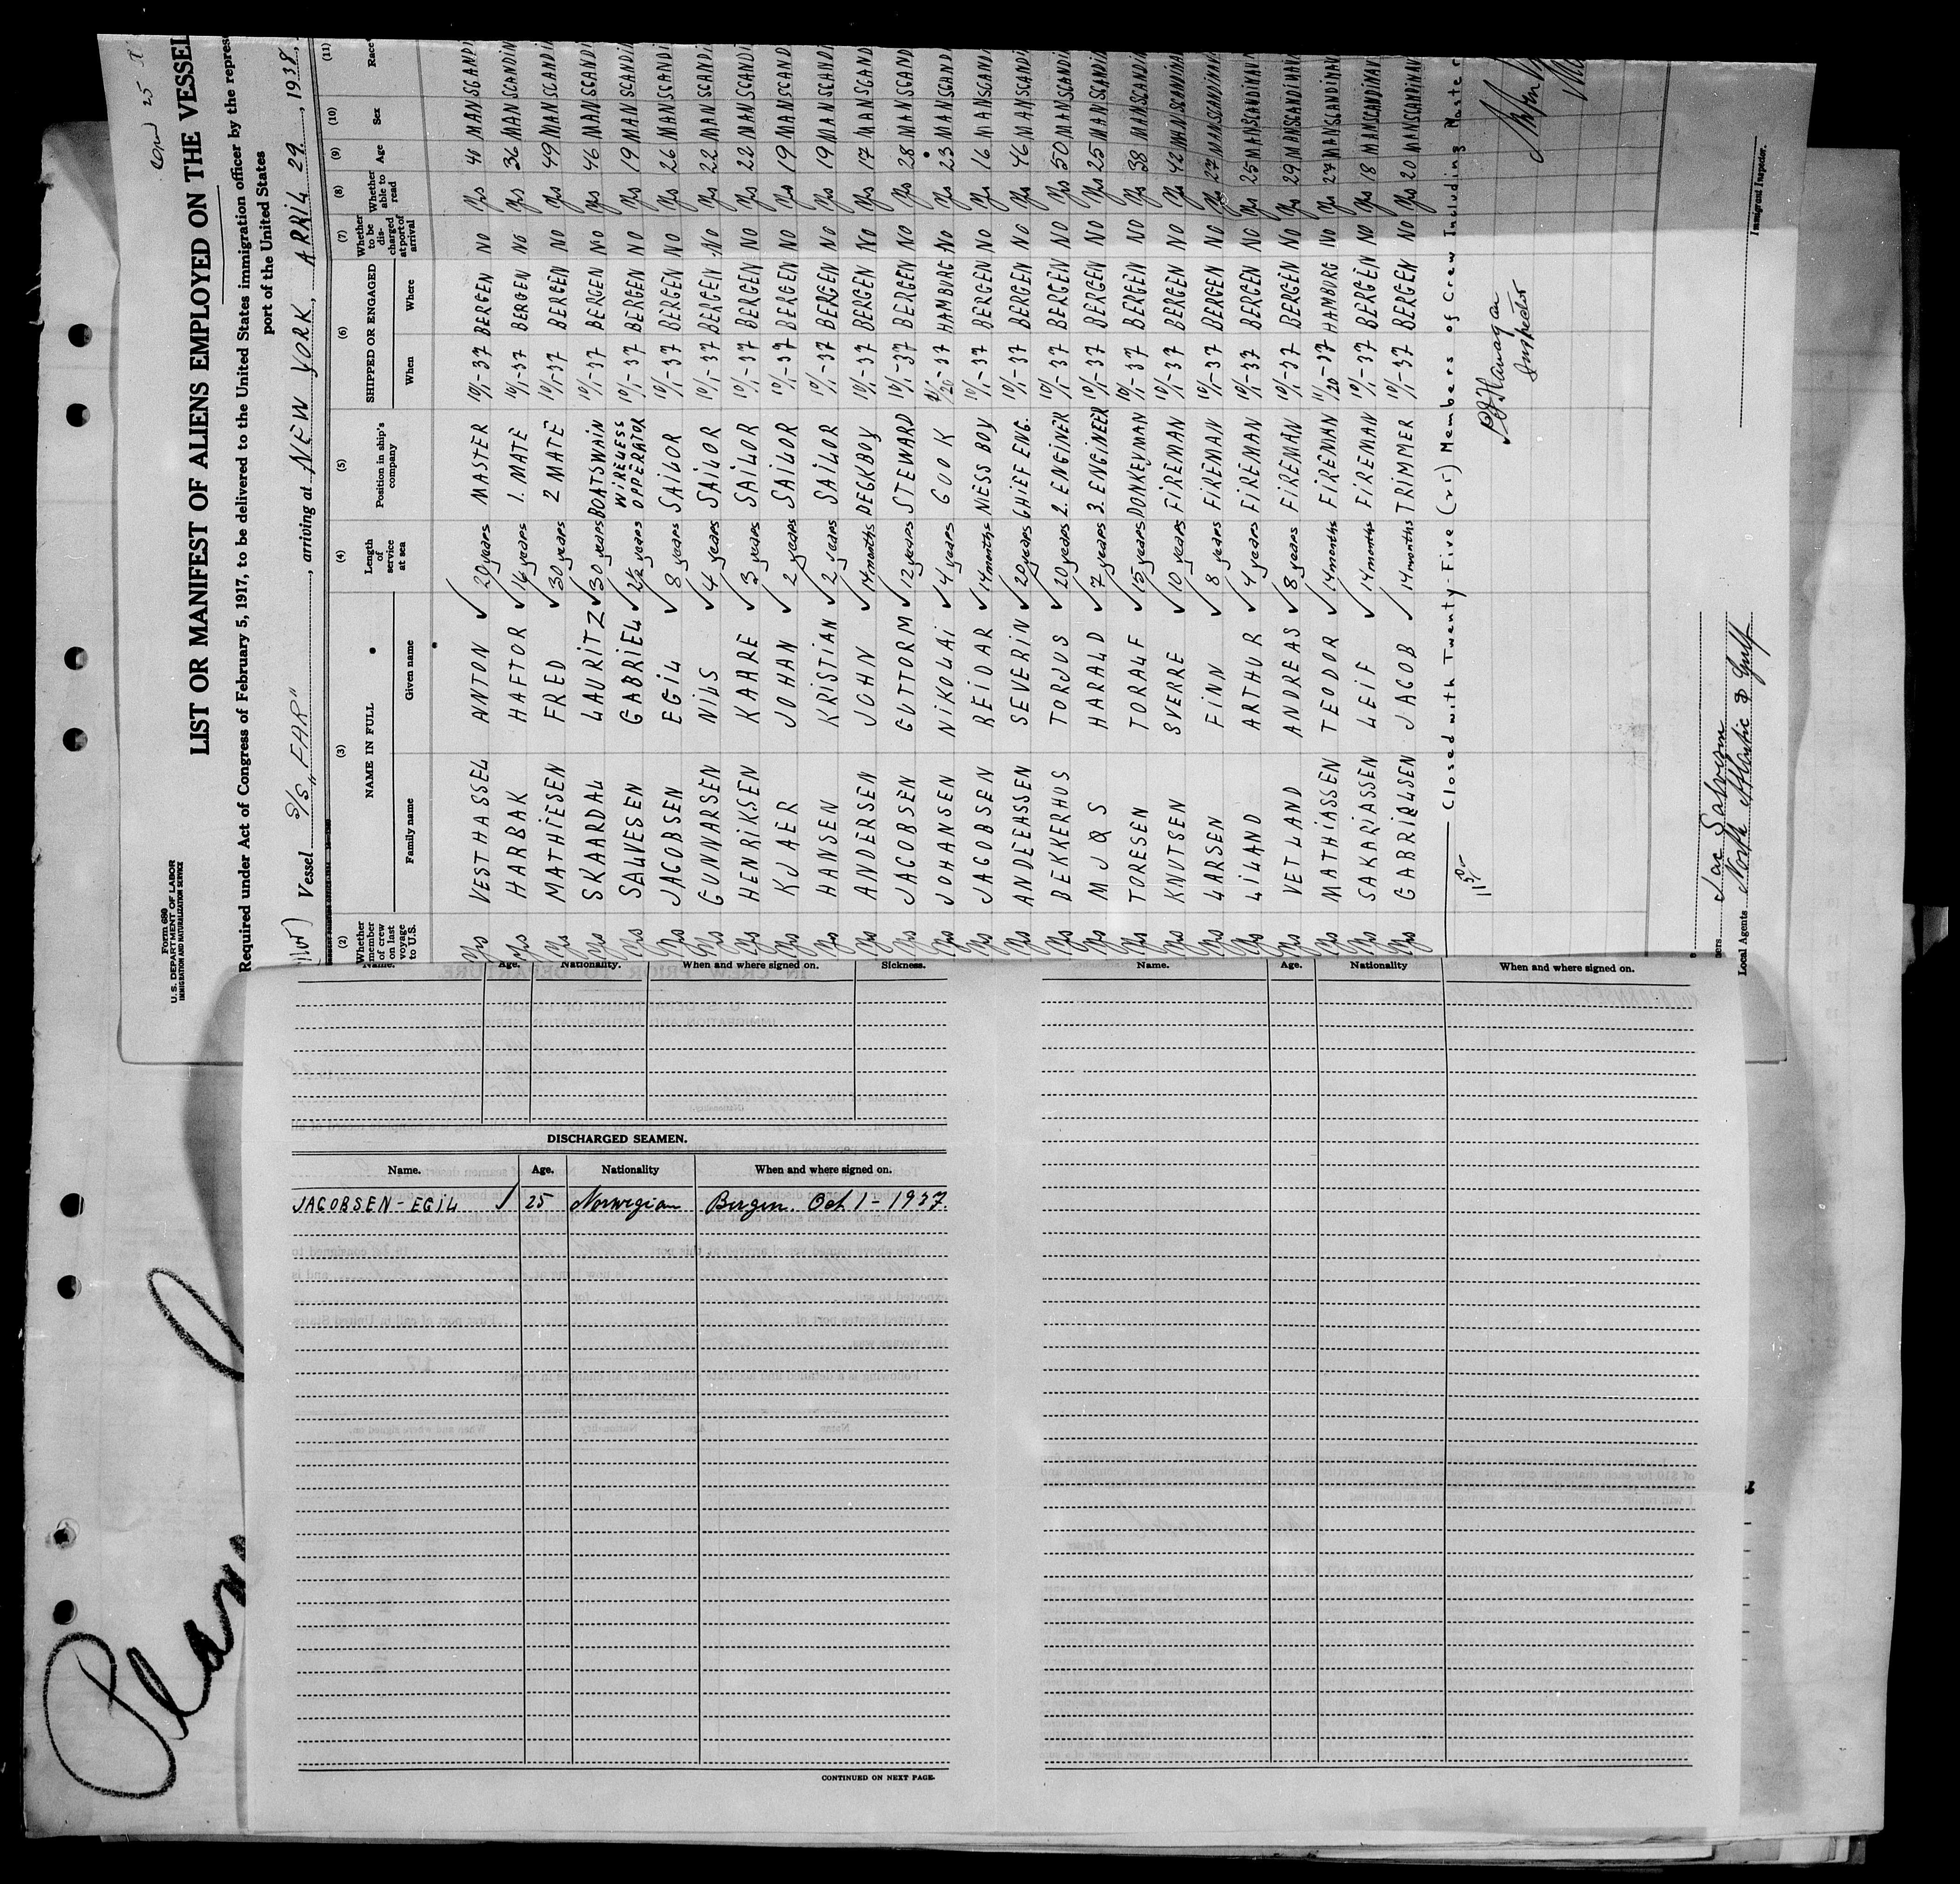 Form 680
U.S. DEPARTMENT OF LABOR
IMMIGRATION AND NATURALIZATION SERVICE
LIST OR MANIFEST OF ALIENS EMPLOYED ON THE VESSEL
Required under Act of Congress of February 5, 1917, to be delivered to the United States immigration officer by the repres
port of the United States
Vessel S/S „FAR" , arriving at NEW YORK, APRIL 29. , 1938,
(2) (3) (4) (5) (6) (7) (8) (9) (10) (11)
Whether member of crew on last voyage to U.S. NAME IN FULL Length of service at sea Position in ship's company SHIPPED OR ENGAGED Whether to be discharged at port of arrival Whether able to read Age Sex Race
Family name Given name When Where
Yes VESTHASSEL ANTON ✓ 20 years MASTER 10/1-37 BERGEN NO Yes 40 MAN SCANDI
Yes HARBAK HAFTOR ✓ 14 years 1. MATE 10/1-37 BERGEN NO Yes 36 MAN SCANDIN
Yes MATHIESEN FRED ✓ 30 years 2 MATE 10/1-37 BERGEN NO Yes 49 MAN SCANDI
Yes SKAARDAL LAURITZ ✓ 30 years BOATSWAIN 10/1-37 BERGEN NO Yes 46 MAN SCANDI
Yes SALVESEN GABRIEL ✓ 2½ years WIRELESS OPPERATOR 10/1-37 BERGEN NO Yes 19 MAN SCANDI
Yes JACOBSEN EGIL ✓ 8 years SAILOR 10/1-37 BERGEN NO Yes 26 MAN SCANDI
Yes GUNNARSEN NILS ✓ 4 years SAILOR 10/1-37 BERGEN NO Yes 22 MAN SCANDI
Yes HENRIKSEN KAARE ✓ 3 years SAILOR 10/1-37 BERGEN NO Yes 22 MAN SCANDI
Yes KJAER JOHAN ✓ 2 years SAILOR 10/1-37 BERGEN NO Yes 19 MAN SCANDI
Yes HANSEN KRISTIAN ✓ 2 years SAILOR 10/1-37 BERGEN NO Yes 19 MAN SCANDI
Yes ANDERSEN JOHN ✓ 14 months DECKBOY 10/1-37 BERGEN NO Yes 17 MAN SCAND
Yes JACOBSEN GUTTORM ✓ 12 years STEWARD 10/1-37 BERGEN NO Yes 28 MAN SCAND
Yes JOHANSEN NIKOLAI ✓ 4 years COOK 11/20-37 HAMBURG NO Yes 23 MAN SCAND
Yes JACOBSEN REIDAR ✓ 14 months MESS BOY 10/1-37 BERGEN NO Yes 16 MAN SCAND
Yes ANDEEASSEN SEVERIN ✓ 20 years CHIEF ENG. 10/1-37 BERGEN NO Yes 46 MAN SCAND
Yes BEKKERHUS TORJUS ✓ 20 years 2. ENGINER 10/1-37 BERGEN NO Yes 50 MAN SCANDI
Yes MJØS HARALD ✓ 7 years 3. ENGINEER 10/1-37 BERGEN NO Yes 25 MAN SCANDI
Yes TORESEN TORALF ✓ 15 years DONKEYMAN 10/1-37 BERGEN NO Yes 38 MAN SCANDIN
Yes KNUTSEN SVERRE ✓ 10 years FIREMAN 10/1-37 BERGEN NO Yes 42 MAN SCANDINA
Yes LARSEN FINN ✓ 8 years FIREMAN 10/1-37 BERGEN NO Yes 27 MAN SCANDINAV
Yes LILAND ARTHUR ✓ 4 years FIREMAN 10/1-37 BERGEN NO Yes 25 MAN SCANDINAV
Yes VETLAND ANDREAS ✓ 8 years FIREMAN 10/1-37 BERGEN NO Yes 29 MAN SCANDINAV
Yes MATHIASSEN TEODOR ✓ 14 months FIREMAN 11/20-37 HAMBURG NO Yes 27 MAN SCANDINAV
Yes SAKARIASSEN LEIF ✓ 14 months FIREMAN 10/1-37 BERGEN NO Yes 18 MAN SCANDINAV
Yes GABRIELSEN JACOB ✓ 14 months TRIMMER 10/1-37 BERGEN NO Yes 20 MAN SCANDINAV
Closed with Twenty-Five (25) Members of Crew Including Master
Inspector
Immigrant Inspector.
Local Agents North Atlantic & Gulf
Name. Age. Nationality. When and where signed on. Sickness.
DISCHARGED SEAMEN.
Name. Age. Nationality When and where signed on.
JACOBSEN - EGIL ✓ 25 Norwegian Bergen. Oct 1 - 1937.
CONTINUED ON NEXT PAGE.
Name. Age. Nationality When and where signed on.